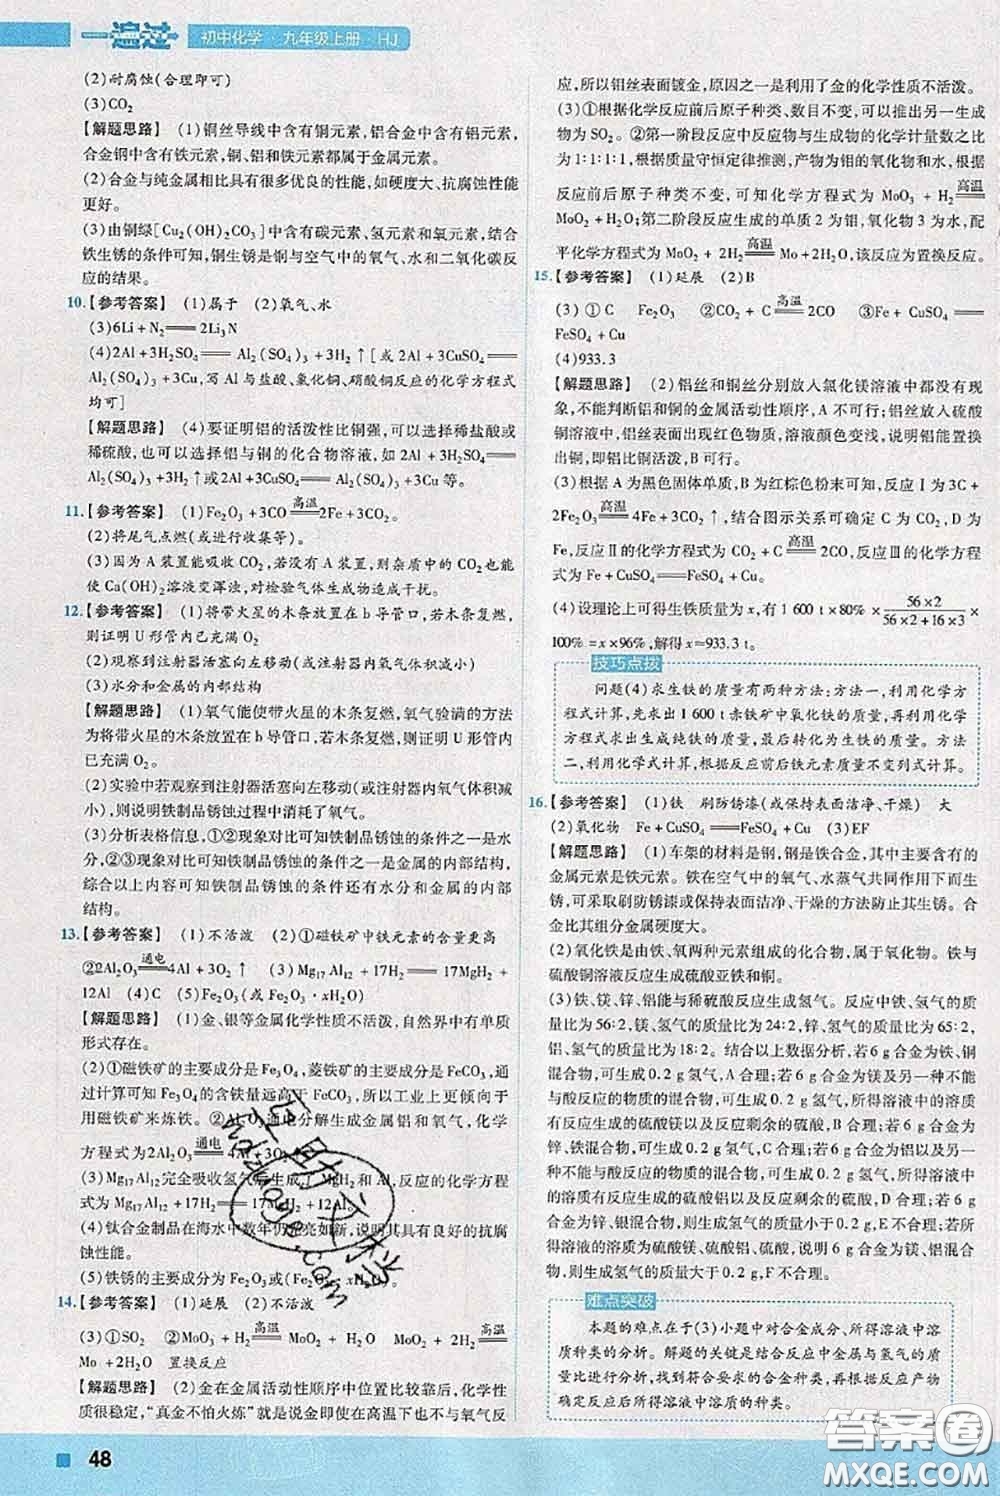 一遍过 初中化学·九年级上册·HJ
(2)耐腐蚀(合理即可)
(3)CO₂
【解题思路】 (1)铜丝导线中含有铜元素,铝合金中含有铝元素,
合金钢中含有铁元素,铜、铝和铁元素都属于金属元素。
(2)合金与纯金属相比具有很多优良的性能,如硬度大、抗腐蚀性能
更好。
(3)由铜绿[Cu₂(OH)₂CO₃]中含有碳元素、氢元素和氧元素,结合
铁生锈的条件可知,铜生锈是铜与空气中的氧气、水和二氧化碳反
应的结果。
10.【参考答案】 (1)属于 (2)氧气、水
(3)6Li+N₂══2Li₃N
(4)2Al+3H₂SO₄══Al₂(SO₄)₃+3H₂↑[或2Al+3CuSO₄══
Al₂(SO₄)₃+3Cu,写Al与盐酸、氯化铜、硝酸铜反应的化学方程式
均可]
【解题思路】 (4)要证明铝的活泼性比铜强,可以选择稀盐酸或
稀硫酸,也可以选择铝与铜的化合物溶液,如2Al+3H₂SO₄══
Al₂(SO₄)₃+3H₂↑或2Al+3CuSO₄══Al₂(SO₄)₃+3Cu等。
11.【参考答案】 (1)Fe₂O₃+3CO═高温═2Fe+3CO₂。
(2)将尾气点燃(或进行收集等)。
(3)因为A装置能吸收CO₂,若没有A装置,则产物中的CO₂也能
使Ca(OH)₂溶液变浑浊,对检验气体生成物造成了干扰。
12.【参考答案】 (1)将带火星的木条放置在b导管口,若木条复燃,
则证明U形管内已充满O₂
(2)观察到注射器活塞向左移动(或注射器内氧气体积变小)
(3)水分和金属的内部结构
【解题思路】 (1)氧气能使带火星的木条复燃,氧气验满的方法
为将带火星的木条放置在b导管口,若木条复燃,则证明U形管内
已充满O₂。
(2)实验中若观察到注射器活塞向左移动(或注射器内氧气体积变
小),则说明铁制品锈蚀过程中消耗了氧气。
(3)分析表格信息,①②现象对比可知铁制品锈蚀的条件之一是水
分,②③现象对比可知铁制品锈蚀的条件之一是金属的内部结构,
综合以上可知铁制品锈蚀的条件还有水分和金属的内部
结构。
13.【参考答案】 (1)不活泼 (2)①磁铁矿中铁元素的含量更高
②2Al₂O₃═通电═4Al+3O₂↑ (3)Mg₁₇Al₁₂+17H₂══17MgH₂+
12Al (4)C (5)Fe₂O₃(或Fe₂O₃·xH₂O)
【解题思路】 (1)金、银等金属化学性质不活泼,自然界中有单质
形式存在。
(2)①磁铁矿的主要成分是Fe₃O₄,菱铁矿的主要成分是FeCO₃,通
过计算可知Fe₃O₄的含铁量远高于FeCO₃,所以工业上更倾向于
用磁铁矿来炼铁。②Al₂O₃通电分解生成金属铝和氧气,化学
方程式为2Al₂O₃═通电═4Al+3O₂↑
(3)Mg₁₇Al₁₂完全吸收氢气后生成了MgH₂和Al,反应的化学方程
式为Mg₁₇Al₁₂+17H₂══17MgH₂+12Al
(4)钛合金制品在海水中数年仍光亮如新,说明其有良好的抗腐
蚀性能。
(5)铁锈的主要成分为Fe₂O₃或(Fe₂O₃·xH₂O)
14.【参考答案】 (1)延展 (2)不活泼
(3)①SO₂ ②MoO₃+H₂═高温═MoO₂+H₂O MoO₂+2H₂═高温═
Mo+2H₂O 置换反应
【解题思路】 (2)金在金属活动性顺序中位置比较靠后,化学性
质很稳定,“真金不怕火炼”就是说金即使在高温下也不与氧气反
应,所以铝丝表面镀金,原因之一是利用了金的化学性质不活泼。
(3)①根据化学反应前后原子种类、数目不变,可以推出另一生成
物为SO₂。②第一阶段反应中反应物与生成物的化学计量数之比
为1:1:1:1,根据质量守恒定律推测,产物为钼的氧化物和水,根据
反应前后原子种类不变,可知化学方程式为MoO₃+H₂═高温═
MoO₂+H₂O;第二阶段反应生成的单质2为钼,氧化物3为水,配
平化学方程式为MoO₂+2H₂═高温═Mo+2H₂O,该反应为置换反应。
15.【参考答案】 (1)延展 (2)B
(3)①C Fe₂O₃ ②CO₂+C═高温═2CO ③Fe+CuSO₄══
FeSO₄+Cu
(4)933.3
【解题思路】 (2)铝丝和铜丝分别放入氯化镁溶液中都没有现
象,不能判断铝和铜的金属活动性顺序,A不可行;铝丝放入硫酸
铜溶液中,铝丝表面出现红色物质,溶液颜色变浅,说明铝能置换
出铜,即铝比铜活泼,B可行。
(3)根据A为黑色固体单质,B为红棕色粉末可知,反应Ⅰ为3C+
2Fe₂O₃═高温═4Fe+3CO₂↑,结合图示关系可确定C为CO₂,D为
Fe,反应Ⅱ的化学方程式为CO₂+C═高温═2CO,反应Ⅲ的化学方程式
为Fe+CuSO₄══FeSO₄+Cu。
(4)设理论上可得生铁质量为x,有1 600 t×80%×(56×2)/(56×2+16×3)×
100%=x×96%,解得x=933.3 t。
技巧点拨
问题(4)求生铁的质量有两种方法:方法一,利用化学方
程式计算,先求出1 600 t赤铁矿中氧化铁的质量,再利用化学
方程式求出生成纯铁的质量,最后转化为生铁的质量。方法
二,利用化学式计算,根据反应前后铁元素质量不变列式计算。
16.【参考答案】 (1)铁 刷防锈漆(或保持表面洁净、干燥) 大
(2)氧化物 Fe+CuSO₄══FeSO₄+Cu (3)EF
【解题思路】 (1)车架的材料是钢,钢是铁合金,其中含有的主要
金属元素是铁元素。铁在空气中的氧气、水蒸气共同作用下而生
锈,可采取刷防锈漆或保持表面洁净、干燥的方法防止其生锈。合
金比其组分金属硬度大。
(2)氧化铁是由铁、氧两种元素组成的化合物,属于氧化物。铁与
硫酸铜溶液反应生成硫酸亚铁和铜。
(3)铁、镁、锌、铝能与稀硫酸反应生成氢气。反应中铁、氢气的质
量比为56:2,镁、氢气的质量比为24:2,锌、氢气的质量比为65:2,
铝、氢气的质量比为18:2。结合以上数据分析,若6 g合金为铁、铜
混合物,可生成0.2 g氢气,A合理;若6 g合金为镁及另一种不能
与酸反应的物质的混合物,可生成0.2 g氢气,所得溶液中的溶质
有反应生成的硫酸镁以及反应剩余的硫酸,B合理;若6 g合金为
锌、铁混合物,可生成0.2 g氢气,C合理;若6 g合金为铝以及另一
种不能与酸反应的物质的混合物,可生成0.2 g氢气,所得溶液中
的溶质有反应生成的硫酸铝以及反应剩余的硫酸,D合理;若6 g
合金为锌、银混合物,则生成氢气的质量小于0.2 g,E不合理;若所
得溶液的溶质为硫酸镁、硫酸铝、硫酸,说明6 g合金为镁、铝混合
物,则生成氢气的质量大于0.2 g,F不合理。
难点突破
本题的难点在于(3)小题中对合金成分、所得溶液中溶
质种类的分析。解题的关键是结合反应中金属与氢气的质量
比关系,找到能满足题干要求的合金种类,再根据反应产物
确定反应后所得溶液中的溶质的种类。
48
答案圈
MXQE.COM